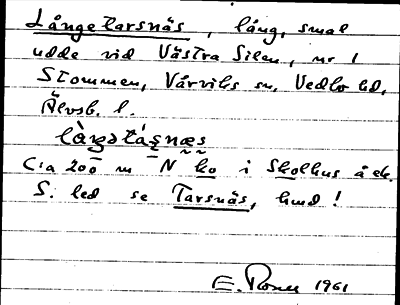 Långetarsnäs, lång, smal
udde vid Västra Silen, nr 1
Stommen, Vårviks sn, Vedbo hd,
Älvsb. l.
Ca 200 m N ko i Skolhus å ek.
S. led se Tarsnäs, hmd!
E. Rosén 1961